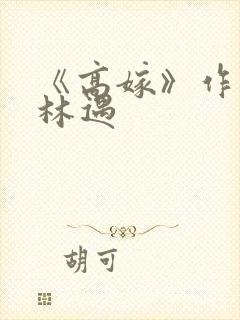 《高嫁》作
林遇
胡可